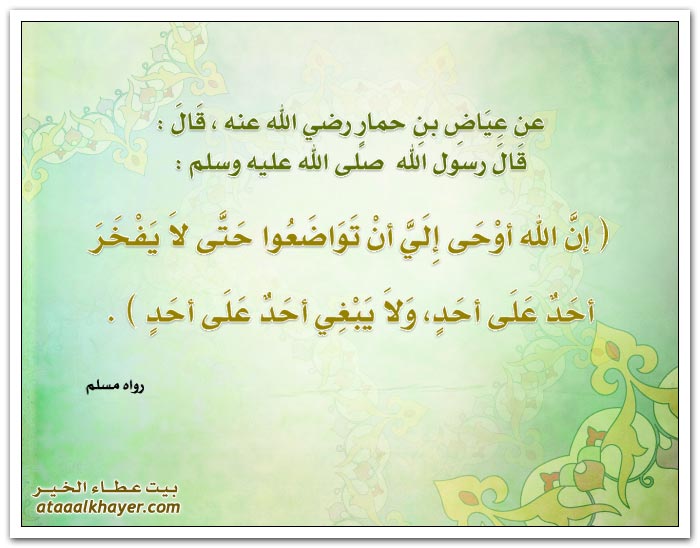 عن عِيَاضِ بنِ حمارٍ رضي الله عنه ، قَالَ :
قَالَ رسول الله صلى الله عليه وسلم :
( إنَّ الله أوْحَى إِلَيَّ أنْ تَوَاضَعُوا حَتَّى لاَ يَفْخَرَ
أحَدٌ عَلَى أحَدٍ، وَلاَ يَبْغِي أحَدٌ عَلَى أحَدٍ ) .
رواه مسلم
بيت عطاء الخير
ataaalkhayer.com